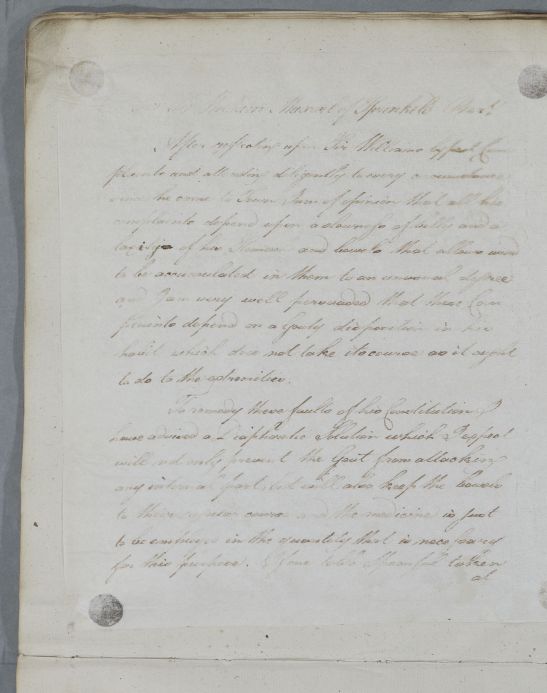 For Sir William Maxwel of Sprinkell Bart
After reflecting upon Sir Williams Com
plaints and attending diligently to every circumstance
since he came to Town I am of opinion that all his
complaints depend upon a and a
of his Stomach and bowels that allows wind
to be accumulated in them to an unusual degree
and I am very well persuaded that these Com
plaints depend on a Gouty disposition in his
habit which does not take its course as it ought
to do to the extremities.
To remedy these faults of his Constitution I
have advised a Solution which I expect
will not only prevent the Gout from attacking
any internal part but will also keep the bowels
to their proper course and the medicine is just
to be continued in the quantity that is necessary
for this purpose. If one table Spoonful taken
at